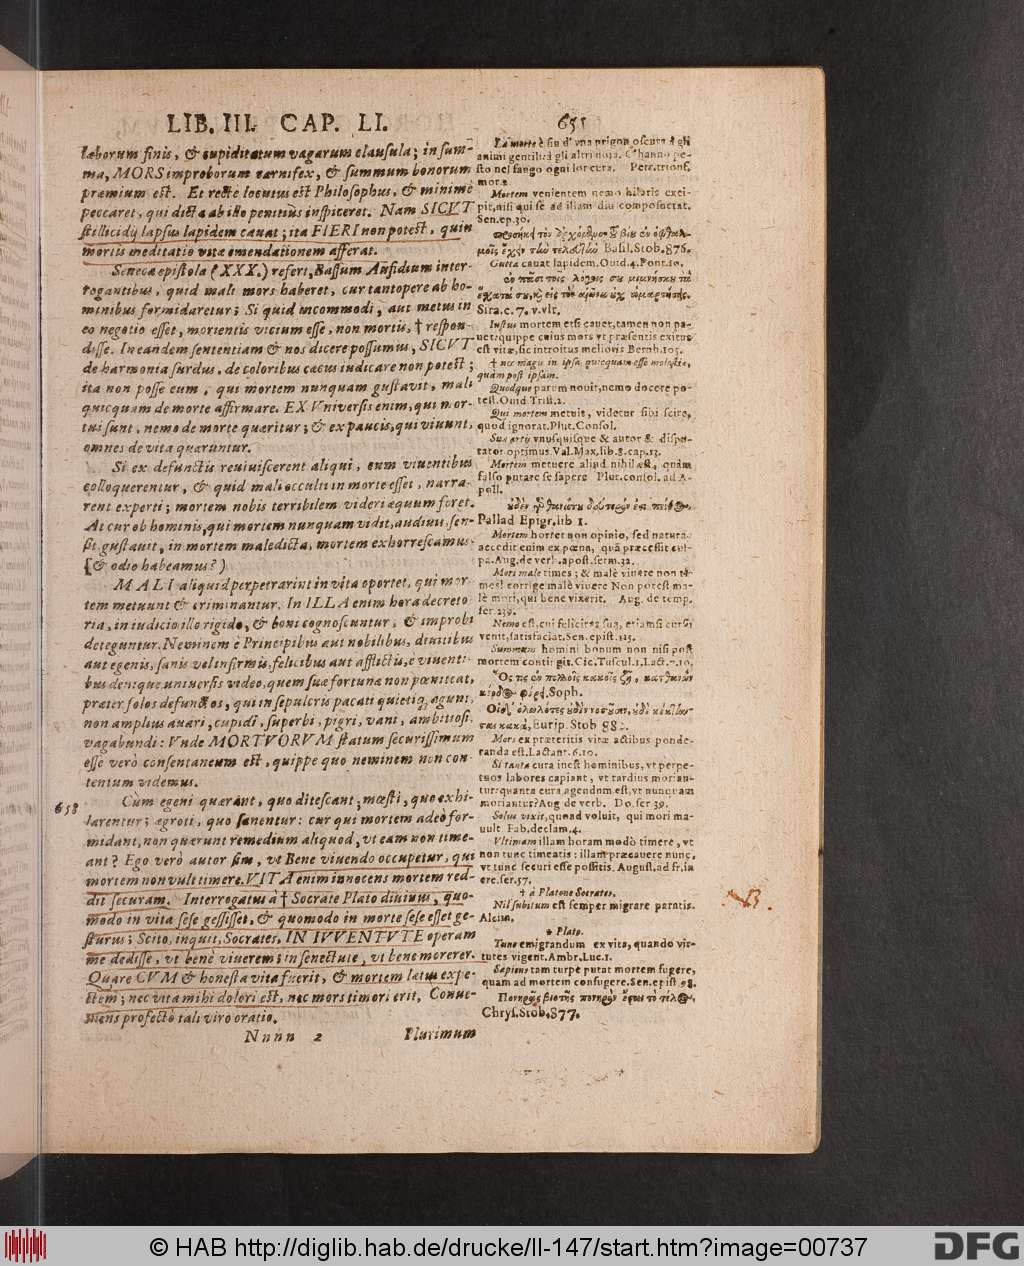 LIB. III. CAP. LI. 655
laborum finis, & cupiditatum vagarum clausula; in sum-
ma, MORS improborum carnifex, & summum bonorum
præmium est. Et recte locutus est Philosophus, & minimè
peccaret, qui dicta ab illo penitiùs inspiceret. Nam SICVT
stillicidij lapsus lapidem cauat; ita FIERI non potest, quin
mortis meditatio vitæ emendationem afferat.
Seneca epistola (XXX.) refert, Bassum Aufidium inter-
rogantibus, quid mali mors haberet, cur tantopere ab ho-
minibus formidaretur; Si quid incommodi, aut metus in
eo negotio esset, morientis vicium esse, non mortis, † respon-
disse. In eandem sententiam & nos dicere possumus, SICVT
de harmonia surdus, de coloribus cæcus iudicare non potest;
ita non posse eum, qui mortem nunquam gustavit, mali
quicquam de morte affirmare. EX Vniversis enim, qui mor-
tui sunt, nemo de morte quæritur; & ex paucis, qui viuunt,
omnes de vita quæruntur.
Si ex defunctis reuiuiscerent aliqui, cum viuentibus
colloquerentur, & quid mali occulti in morte esset, narra-
rent experti; mortem nobis terribilem videri æquum foret.
At cur ob hominis, qui mortem nunquam vidit, audiuit, sen-
sit, gustauit, in mortem maledicta, mortem exhorrescamus
(& odio habeamus?)
MALI aliquid perpetrarint in vita oportet, qui mor-
tem metuunt & criminantur. In ILLA enim hora decreto-
ria, in iudicio illo rigido, & boni cognoscuntur, & improbi
deteguntur. Neminem è Principibus aut nobilibus, diuitibus
aut egenis, sanis vel infirmis, felicibus aut afflictis, e viuenti-
bus denique uniuersis video, quem suæ fortunæ non pœniteat,
præter solos defunctos, qui in sepulcris pacati quietiq; agunt,
non amplius auari, cupidi, superbi, pigri, vani, ambitiosi,
vagabundi: Vnde MORTVORVM statum securissimum
esse verò consentaneum est, quippe quo neminem non con-
tentum videmus.
658 Cùm egeni quærant, quo ditescant; mœsti, quo exhi-
larentur; ægroti, quo sanentur: cur qui mortem adeò for-
midant, non quærunt remedium aliquod, vt eam non time-
ant? Ego verò autor sim, vt Bene viuendo occupetur, qui
mortem non vult timere. VITA enim innocens mortem red-
dit securam. Interrogatus à † Socrate Plato diuinus, quo-
modo in vita sese gessisset, & quomodo in morte sese esset ge-
sturus; Scito, inquit, Socrates, IN IVVENTVTE operam
me dedisse, vt benè viuerem; in senectute, vt bene morerer.
Quare CVM & honesta vita fuerit, & mortem lætus expe-
ctem; nec vita mihi dolori est, nec mors timori erit, Conue-
niens profectò tali viro oratio.
Nnnn 2 Plurimum
La morte è fin d'vna prigon oscura à gli
animi gentili à gli altri noia. C'hanno po-
sto nel fango ogni lor cura. Petr. trionf.
mor. 2.
Mortem venientem nemo hilaris exci-
pit, nisi qui se ad illam diu composuerat.
Sen. ep. 30.
Basil. Stob. 876.
Gutta cauat lapidem. Ouid. 4. Pont. 10.
Sira. c. 7. v. vlt.
Iustus mortem etsi cauet, tamen non pa-
uet: quippe cuius mors vt præsentis exitus
est vitæ, sic introitus melioris Bernh. 105.
† nec magis in ipsa quicquam esse molestiæ,
quàm post ipsam.
Quodque parum nouit, nemo docere po-
test. Ouid Trist. 2.
Qui mortem metuit, videtur sibi scire,
quod ignorat. Plut. Consol.
Suæ artis vnusquisque & autor & dispu-
tator optimus. Val. Max. lib. 8. cap. 13.
Mortem metuere aliud nihil est, quàm
falso putare se sapere Plut. consol. ad A-
poll.
Pallad Epigr. lib 1.
Mortem horret non opinio, sed natura:
accedit enim ex pœna, quā præcessit cul-
pa. Aug. de verb. apost. serm. 32.
Mori male times; & malè viuere non ti-
mes! corrige malè viuere Non potest ma-
lè mori, qui bene vixerit. Aug. de temp.
ser. 239.
Nemo est, cui felicitas sua, etiamsi cursu
venit, satisfaciat. Sen. epist. 115.
Summum homini bonum non nisi post
mortem contingit. Cic. Tuscul. 1, Lact. 7. 10.
Soph.
Eurip. Stob
Mors ex præteritis vitæ actibus ponde-
randa est. Lactant. 6. 10.
Si tanta cura inest hominibus, vt perpe-
tuos labores capiant, vt tardius morian-
tur: quanta cura agendum est, vt nunquam
moriantur? Aug de verb. Do. ser 39.
Solus vixit, quoad voluit, qui mori ma-
uult Fab. declam. 4.
Vltimam illam horam modò timere, vt
non tunc timeatis: illam præcauere nunc,
vt tunc securi esse possitis. August. ad fr. in
ere. ser. 57.
† à Platone Socrates.
Nil subitum est semper migrare paratis.
Alcim.
* Plato.
Tunc emigrandum ex vita, quando vir-
tutes vigent. Ambr. Luc. 1.
Sapiens tam turpe putat mortem fugere,
quam ad mortem confugere. Sen. epist 98.
Chrys. Stob. 877.
© HAB http://diglib.hab.de/drucke/ll-147/start.htm?image=00737
DFG